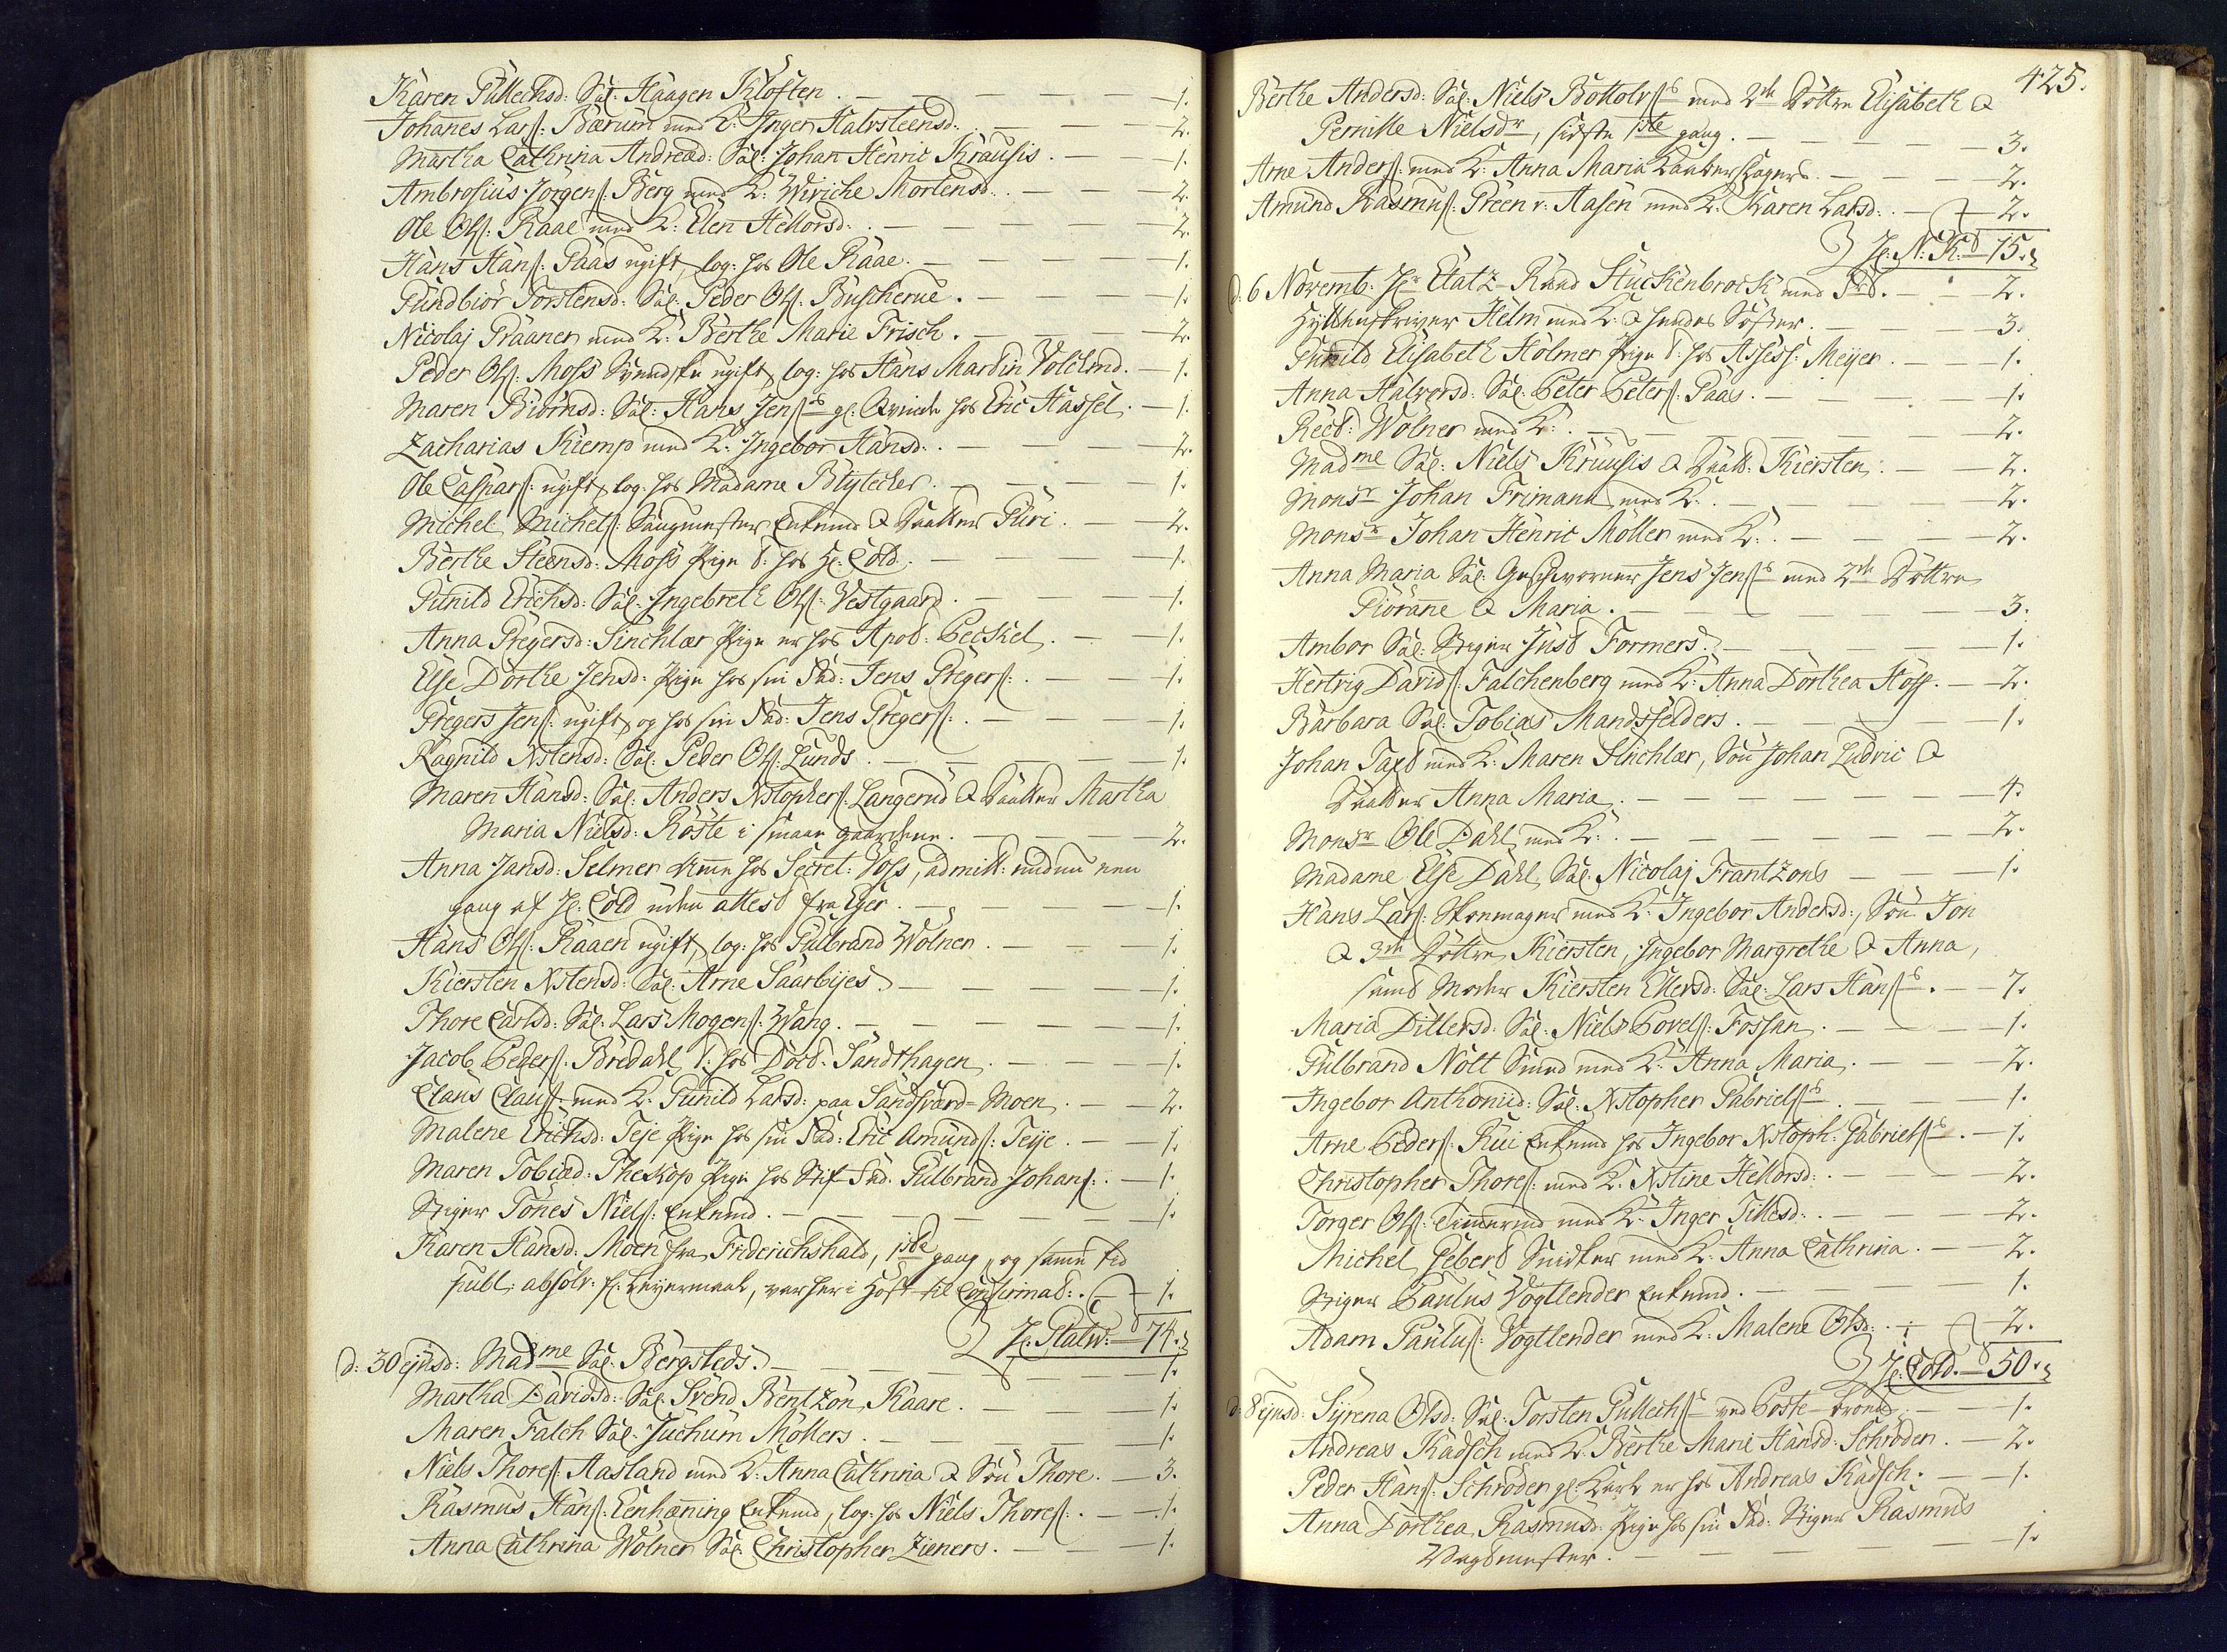 Karen Gullechsd: Sal: Haagen Kloften. — 1.
Johanes Lars: Bærum med K: Inger Halvsteensd: — 2.
Martha Cathrina Andread: Sal: Johan Henric Krausis. — 1.
Ambrosius Jörgens: Berg med K: Wiviche Mortensd: — 2.
Ole Ols: Raae med K: Elen Hellorsd: — 2.
Hans Hans: Paas ugift, log: hos Ole Raae. — 1.
Gundbiör Torstensd: Sal: Peder Ols: Buscherue. — 1.
Nicolaj Graaner med K: Berthe Marie Frisch. — 2.
Peder Ols: Moss Svendske ugift, log: hos Hans Martin — 1.
Maren Biörnsd: Sal: Hans Jens: gl: Qvinde hos Eric Hassel. — 1.
Zacharias Kiemp med K: Ingebor Hansd: — 2.
Ole Caspars: ugift, log: hos Madame Blytecher. — 1.
Michel Michels: Enkemd & Daatter Guri. — 2.
Berthe Steensd: Moss Pige t: hos Hr: Cold. — 1.
Gunild Erichsd: Sal: Ingebreth Ols: Vestgaard. — 1.
Anna Gregersd: Sinchlar Pige er hos Apot: Peckel. — 1.
Else Dorthe Jensd: Pige hos sin Fad: Jens Gregers: — 1.
Gregers Jens: ugift, og hos sin Fad: Jens Gregers: — 1.
Ragnild Xstensd: Sal: Peder Ols: Lunds. — 1.
Maren Hansd: Sal: Anders Xstophers: Langerud & Daatter Martha
Maria Nielsd: Röste i smaae gaardene. — 2.
Anna Jansd: Selmer Ame hos Secret: Voss, admitt: endnu een
gang af Hr: Cold uden attest fra Eger. — 1.
Hans Ols: Raaen ugift, log: hos Gulbrand Wolner. — 1.
Kiersten Xstensd: Sal: Arne Saarbyes. — 1.
Thore Carlsd: Sal: Lars Mogens: Wang. — 1.
Jacob Peders: Bredahl t: hos Doct: Sandthagen. — 1.
Claus Claus: med K: Gunild Larsd: paa Sandsværd-Moen. — 2.
Malene Erichsd: Teje Pige hos sin Fad: Eric Amunds: Teije. — 1.
Maren Tobiæd: Pige hos Stif-Fad: Gulbrand Johans: — 1.
Stiger Tönes Niels: Enkemd. — 1.
Karen Hansd: Moen fra Friderichshald, 1ste gang, og same tid
publ: absolv: for Leyermaal, var her i Höst til Confirmat: — 1.
Hr: — 74.
d: 30 ejusd: Madme Sal: Bergsteds. — 1.
Martha Davidsd: Sal: Svend Bentzon Kaare. — 1.
Maren Falch Sal: Juchum Möllers. — 1.
Niels Thores: Aasland med K: Anna Cathrina & Sön Thore. — 3.
Rasmus Hans: Eenhæning Enkemd, log: hos Niels Thores: — 1.
Anna Cathrina Wölner Sal: Christopher Zieners. — 1.
425.
Berthe Andersd: Sal: Niels Bottolvs: med 2de Döttre Elisabeth &
Pernille Nielsdr, sidste 1ste gang. — 3.
Arne Anders: med K: Anna Maria — 2.
Amund Rasmus: Green v: Aasen med K: Karen Larsd: — 2.
Hr: N: K: — 15.
d: 6 Novemb: Hr Etatz-Raad Stuckenbrock med Frd. — 2.
Hyttskriver Helm med K: & hendes Söster. — 3.
Gunild Elisabeth Holmer Pige t: hos Assess: Meyer. — 1.
Anna Halversd: Sal: Peter Peters: Paas. — 1.
Recd: Wölner med K: — 2.
Madme Sal: Niels Kruusis & Daatt: Kiersten. — 2.
Monsr Johan Frimann med K: — 2.
Monsr Johan Henric Möller med K: — 2.
Anna Maria Sal: Geschworner Jens Jens: med 2de Döttre
Giörane & Maria. — 3.
Ambor Sal: Stiger Just Formers. — 1.
Hertvig Davids: Falchenberg med K: Anna Dorthea Hoff. — 2.
Barbara Sal: Tobias Mandsfelders. — 1.
Johan Taxt med K: Maren Sinchlar, Sön Johan Ludvic &
Daatter Anna Maria. — 4.
Monsr Ole Dahl med K: — 2.
Madame Else Dahl, Sal: Nicolaj Frantzons — 1.
Hans Lars: Skomager med K: Ingebor Andersd:, Sön Jon
& 3de Döttre, Kiersten, Ingebor Margrethe & Anna,
samt Moder Kiersten Ellersd: Sal: Lars Hans: — 7.
Maria Ditlersd: Sal: Niels Povels: Fossen. — 1.
Gulbrand Nött Smed med K: Anna Maria. — 2.
Ingebor Anthonud: Sal: Xstopher Gabriels: — 1.
Arne Peders: Rui Enkemd hos Ingebor Xstoph: Gabriels: — 1.
Christopher Thores: med K: Xstine Hellorsd: — 2.
Torger Ols: Timermd med K: Inger Tillesd: — 2.
Michel Gebert Snidker med K: Anna Cathrina. — 2.
Stiger Paulus Vogtlender Enkemd. — 1.
Adam Paulus: Vogtlender med K: Malene Olsd: — 2.
Hr: Cold. — 50.
d: 8 ejusd: Syrena Olsd: Sal: Torsten Gullechs: ved Poste-brönd. — 1.
Andreas Kadsch med K: Berthe Marie Hansd: Schröder. — 2.
Peder Hans: Schröder gl: Karl er hos Andreas Kadsch. — 1.
Anna Dorthea Rasmusd: Pige hos sin Fad: Stiger Rasmus
Vagtmester. — 1.